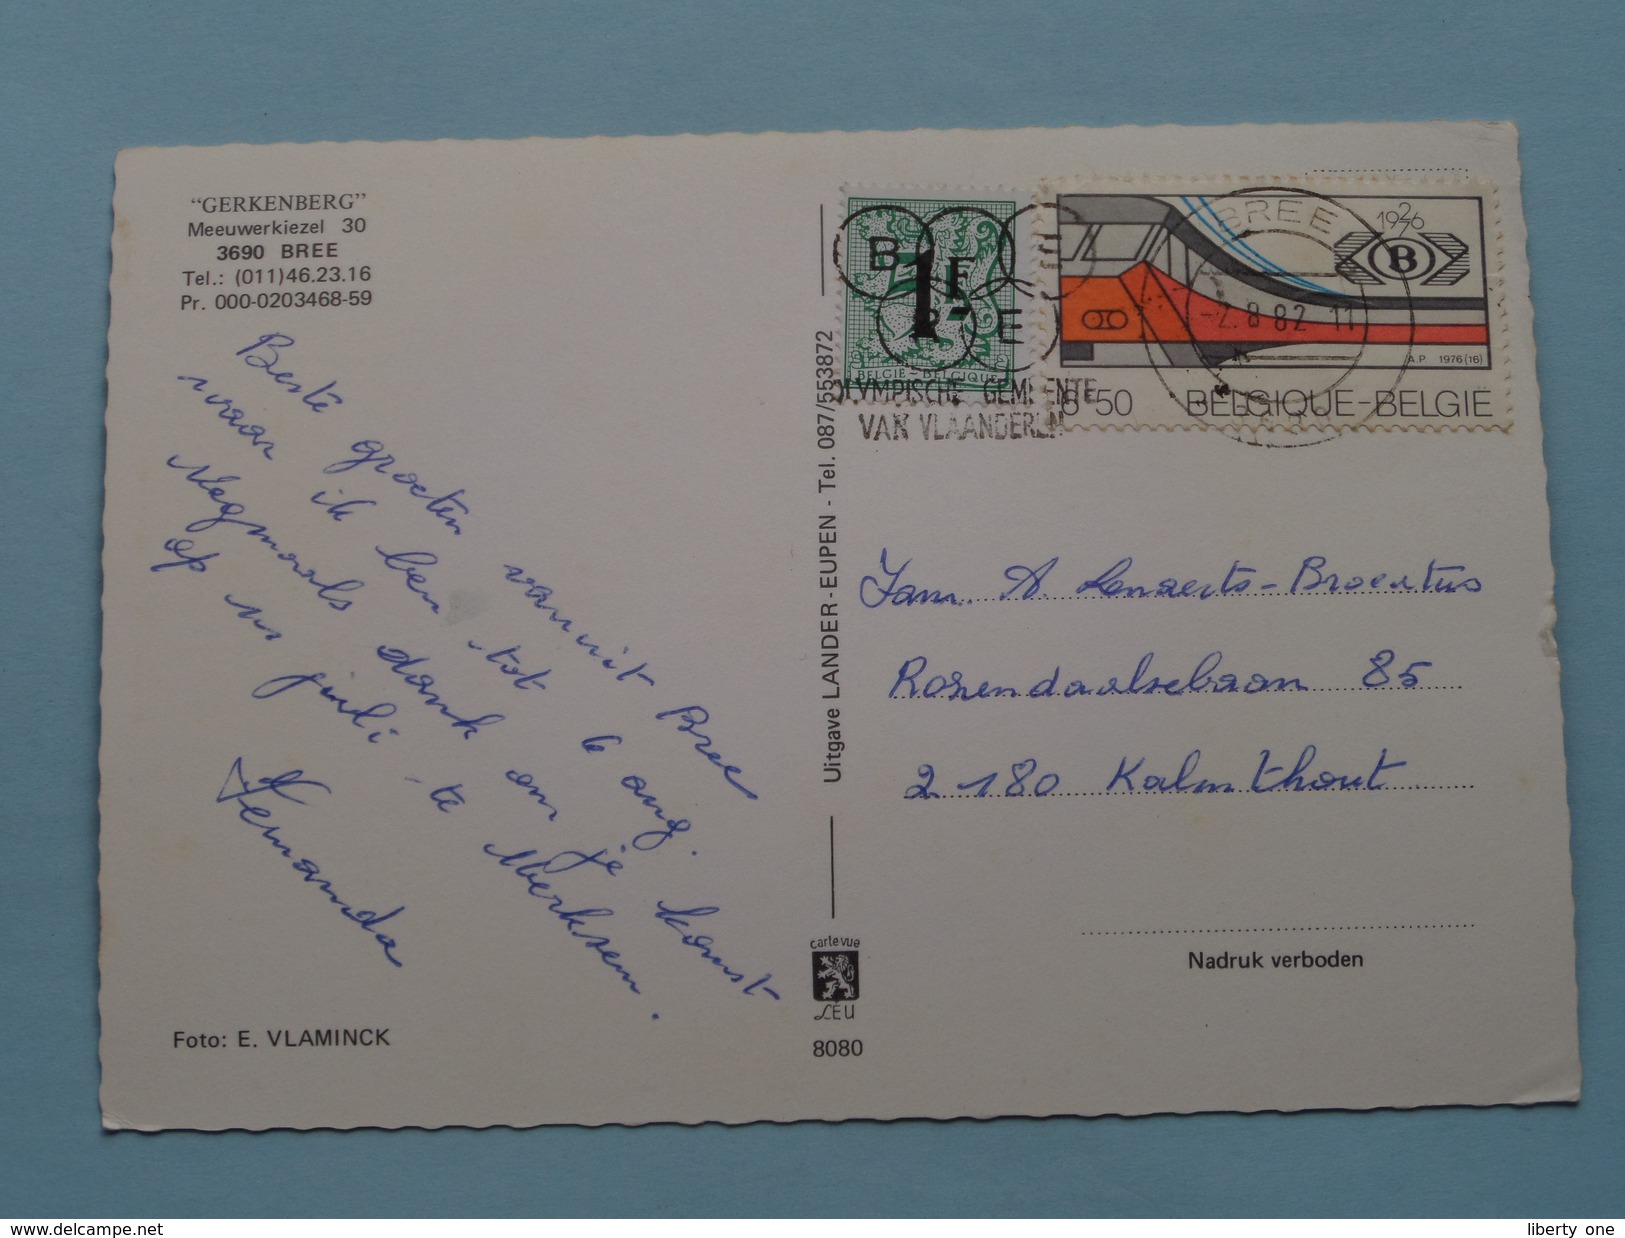 "GERKENBERG"
Meeuwerkiezel 30
3690 BREE
Tel.: (011)46.23.16
Pr. 000-0203468-59
Beste groeten vanuit Bree
waar ik ben tot 6 aug.
Nogmaals dank om je komst
op 11 juli te Merksem.
Fernanda
Foto: E. VLAMINCK
Uitgave LANDER-EUPEN - Tel. 087/553872
carte vue
LEU
8080
B R E E
1F
BELGIE - BELGIQUE
OLYMPISCHE GEMEENTE
VAN VLAANDEREN
BREE
-2.8 82 11
1926
76
B
A.P 1976 (16)
6 50 BELGIQUE-BELGIË
Fam. A. Lenaerts-Broertus
Rozendaalsebaan 85
2180 Kalmthout
Nadruk verboden
liberty one